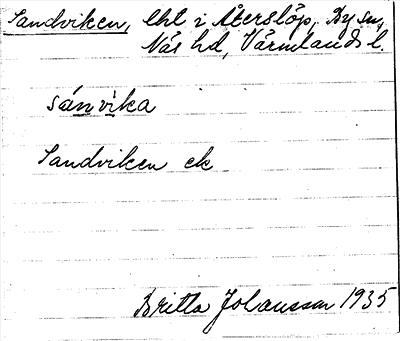 Sandviken, lht i Återslöp, By sn,
Näs hd, Värmlands l.
sánvika
Sandviken ek
Britta Johansson 1935